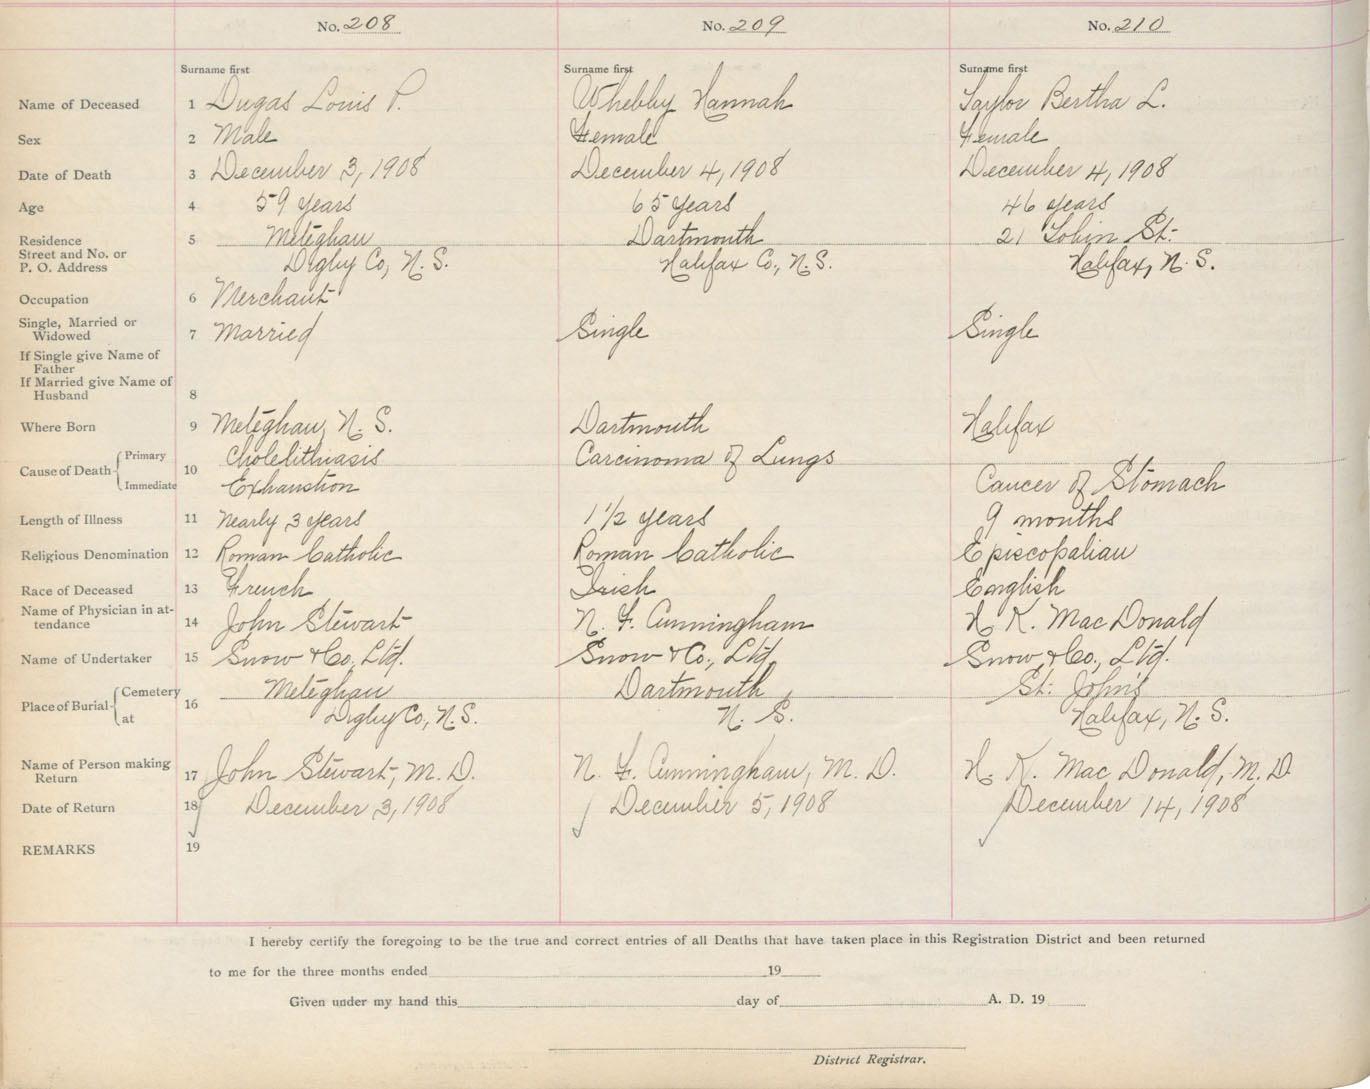 No. 208 No. 209 No. 210
Surname first Surname first Surname first
Name of Deceased 1 Dugas Louis P. Whebby Hannah Taylor Bertha L.
Sex 2 Male Female Female
Date of Death 3 December 3, 1908 December 4, 1908 December 4, 1908
Age 4 59 years 65 years 46 years
Residence 5 Meteghan Dartmouth 21 Tobin St.
Street and No. or
P. O. Address Digby Co, N.S. Halifax Co., N.S. Halifax, N.S.
Occupation 6 Merchant
Single, Married or
Widowed 7 Married Single Single
If Single give Name of
Father
If Married give Name of
Husband 8
Where Born 9 Meteghan, N.S. Dartmouth Halifax
Cause of Death Primary 10 Cholelithiasis Carcinoma of Lungs
Immediate Exhaustion Cancer of Stomach
Length of Illness 11 Nearly 3 years 1 1/2 years 9 months
Religious Denomination 12 Roman Catholic Roman Catholic Episcopalian
Race of Deceased 13 French Irish English
Name of Physician in at-
tendance 14 John Stewart N. F. Cunningham H. K. MacDonald
Name of Undertaker 15 Snow & Co., Ltd. Snow & Co., Ltd. Snow & Co., Ltd.
Place of Burial Cemetery 16 Meteghan Dartmouth St. John's
at Digby Co, N.S. N. S. Halifax, N.S.
Name of Person making
Return 17 John Stewart, M.D. N. F. Cunningham, M.D. H. K. MacDonald, M.D.
Date of Return 18 December 3, 1908 December 5, 1908 December 14, 1908
REMARKS 19
I hereby certify the foregoing to be the true and correct entries of all Deaths that have taken place in this Registration District and been returned
to me for the three months ended 19
Given under my hand this day of A. D. 19
District Registrar.